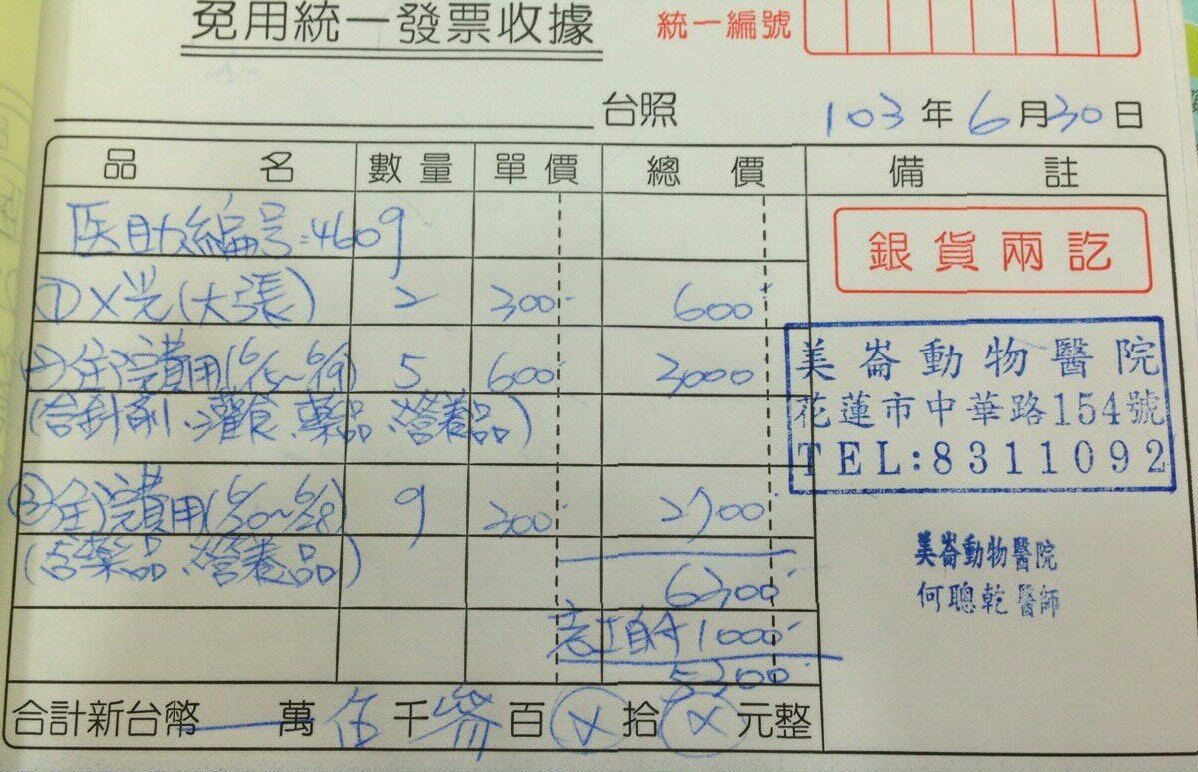 免用統一發票收據
統一編號
台照 103年6月30日
品名 數量 單價 總價 備註
医助編号:4609
銀貨兩訖
①X光(大張) 2 300 600
②住院費用(6/15~6/19) 5 600 3000
(含針劑、灌食、藥品、營養品)
美崙動物醫院
花蓮市中華路154號
TEL:8311092
③住院費用(6/20~6/28) 9 300 2700
(含藥品、營養品)
6300
志工自付 1000
5300
美崙動物醫院
何聰乾醫師
合計新台幣 萬伍千參百 拾 元整